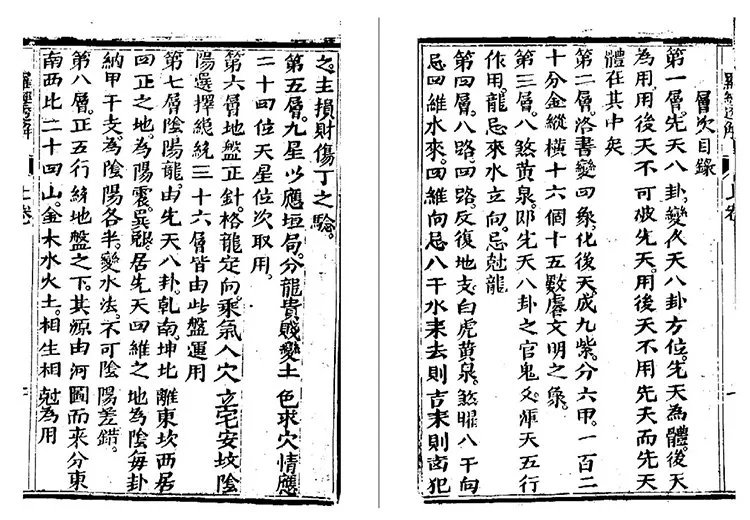 羅經透解
上卷
層次目錄
第一層。先天八卦。變後天八卦方位。先天為體。後天
為用。用後天不可彼先天。用後天不用先天。而先天
體在其中矣
第二層。洛書變四象。化後天。成九紫。分六甲。一百二
十分金。縱橫十六個十五數。虛文明之象。
第三層。八煞黃泉。即先天八卦之官鬼爻。渾天五行
作用。龍忌來水立向。忌尅龍
第四層。八路四路。反復地支白虎黃泉。煞曜八干向
忌四維水來。四維向忌八干水來去則吉來則凶犯
之。主損財傷丁之驗。
第五層。九星以應垣局。分龍貴賤變土色求穴情應
二十四位天星位次取用。
第六層地盤正針。格龍定向。乘氣入穴立宅安坟陰
陽選擇總統三十六層皆由此盤運用
第七層陰陽龍。由先天八卦。乾南。坤北離東坎西居
四正之地。為陽。震。巽。艮。居先天四維之地為陰每卦
納甲干支。為陰陽各半。變水法。不可陰陽差錯。
第八層。正五行統地盤之下。其源由河圖而來分東
南西北二十四山。金木水火土。相生相尅為用
羅經透解
上卷